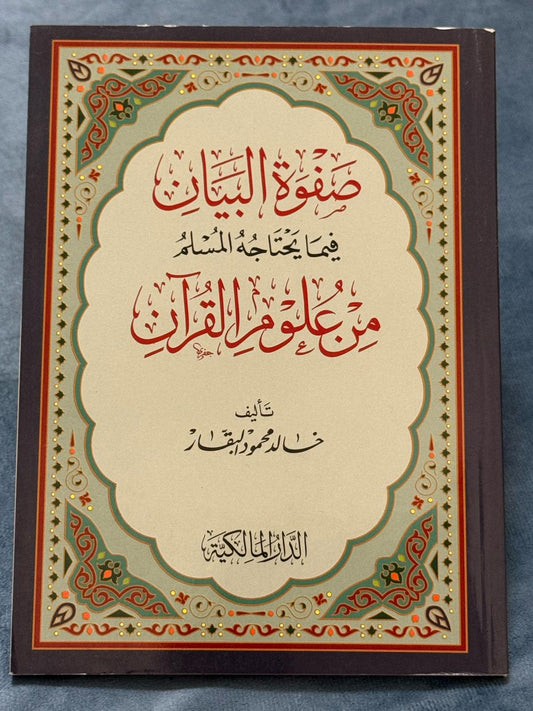 صَفْوَةُ البَيَانِ
فِيمَا يَحْتَاجُهُ المُسْلِمُ
مِنْ عُلُومِ القُرْآنِ
تَأليف
خالد محمود البقَّار
الدَّارُ المَالِكِيَّة